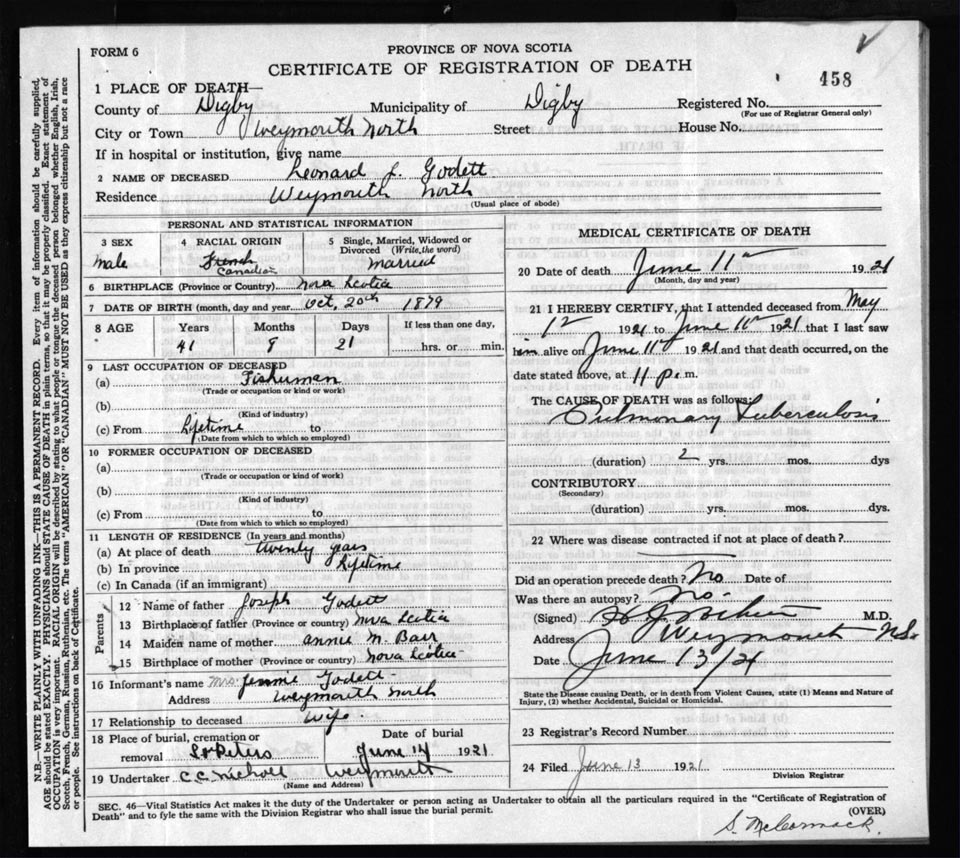 FORM 6
PROVINCE OF NOVA SCOTIA
CERTIFICATE OF REGISTRATION OF DEATH
458
1 PLACE OF DEATH—
County of Digby Municipality of Digby Registered No.
(For use of Registrar General only)
City or Town Weymouth North Street House No.
If in hospital or institution, give name
2 NAME OF DECEASED Leonard J. Godett
Residence Weymouth North
(Usual place of abode)
PERSONAL AND STATISTICAL INFORMATION
3 SEX 4 RACIAL ORIGIN 5 Single, Married, Widowed or Divorced (Write the word)
Male French Canadian Married
6 BIRTHPLACE (Province or Country) Nova Scotia
7 DATE OF BIRTH (month, day and year) Oct, 20th 1879
8 AGE Years Months Days If less than one day,
41 8 21 hrs. or min.
9 LAST OCCUPATION OF DECEASED
(a) Fisherman
(Trade or occupation or kind of work)
(b)
(Kind of industry)
(c) From Lifetime to
(Date from which to which so employed)
10 FORMER OCCUPATION OF DECEASED
(a)
(Trade or occupation or kind of work)
(b)
(Kind of industry)
(c) From to
(Date from which to which so employed)
11 LENGTH OF RESIDENCE (In years and months)
(a) At place of death twenty years
(b) In province Lifetime
(c) In Canada (if an immigrant)
Parents
12 Name of father Joseph Godett
13 Birthplace of father (Province or country) Nova Scotia
14 Maiden name of mother Annie M. Barr
15 Birthplace of mother (Province or country) Nova Scotia
16 Informant's name Mrs. Godett
Address Weymouth North
17 Relationship to deceased Wife.
18 Place of burial, cremation or removal St Peters Date of burial June 14 1921
19 Undertaker C.C. Nicholl Weymouth
(Name and Address)
MEDICAL CERTIFICATE OF DEATH
20 Date of death June 11th 1921
(Month, day and year)
21 I HEREBY CERTIFY, that I attended deceased from May
12 1921 to June 11th 1921 that I last saw
him alive on June 11th 1921 and that death occurred, on the
date stated above, at 11 p.m.
The CAUSE OF DEATH was as follows:
Pulmonary Tuberculosis
(duration) 2 yrs. mos. dys
CONTRIBUTORY
(Secondary)
(duration) yrs. mos. dys.
22 Where was disease contracted if not at place of death?
Did an operation precede death? No Date of
Was there an autopsy? No.
(Signed) M.D.
Address Weymouth N.S.
Date June 13/21
State the Disease causing Death, or in death from Violent Causes, state (1) Means and Nature of
Injury, (2) whether Accidental, Suicidal or Homicidal.
23 Registrar's Record Number
24 Filed June 13 1921
Division Registrar
SEC. 46—Vital Statistics Act makes it the duty of the Undertaker or person acting as Undertaker to obtain all the particulars required in the "Certificate of Registration of
Death" and to fyle the same with the Division Registrar who shall issue the burial permit.
(OVER)
S. McCormack.
N.B.—WRITE PLAINLY WITH UNFADING INK—THIS IS A PERMANENT RECORD. Every item of information should be carefully supplied.
AGE should be stated EXACTLY. PHYSICIANS should STATE CAUSE OF DEATH in plain terms, so that it may be properly classified. Exact statement of
OCCUPATION is very important. RACIAL ORIGIN will be described by stating to what people or tongue the deceased person belonged whether English, Irish,
Scotch, French, German, Russian, Ruthenian, etc. The terms "AMERICAN" OR "CANADIAN" MUST NOT BE USED as they express citizenship but not a race
or people. See instructions on back of Certificate.